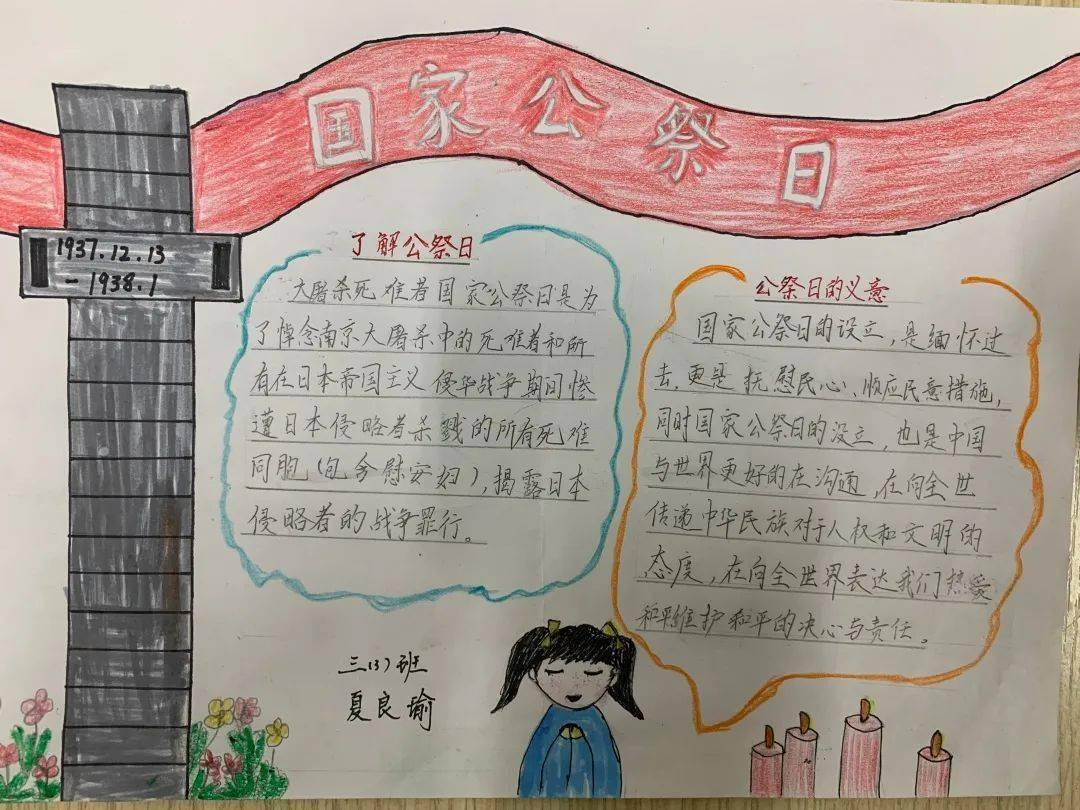 国家公祭日
1937.12.13
-1938.1
了解公祭日
大屠杀死难者国家公祭日是为
了悼念南京大屠杀中的死难者和所
有在日本帝国主义侵华战争期间惨
遭日本侵略者杀戮的所有死难
同胞(包含慰安妇),揭露日本
侵略者的战争罪行。
公祭日的义意
国家公祭日的设立,是缅怀过
去,更是抚慰民心、顺应民意措施,
同时国家公祭日的设立,也是中国
与世界更好的在沟通,在向全世
传递中华民族对于人权和文明的
态度,在向全世界表达我们热爱
和平维护和平的决心与责任。
三(3)班
夏良瑜